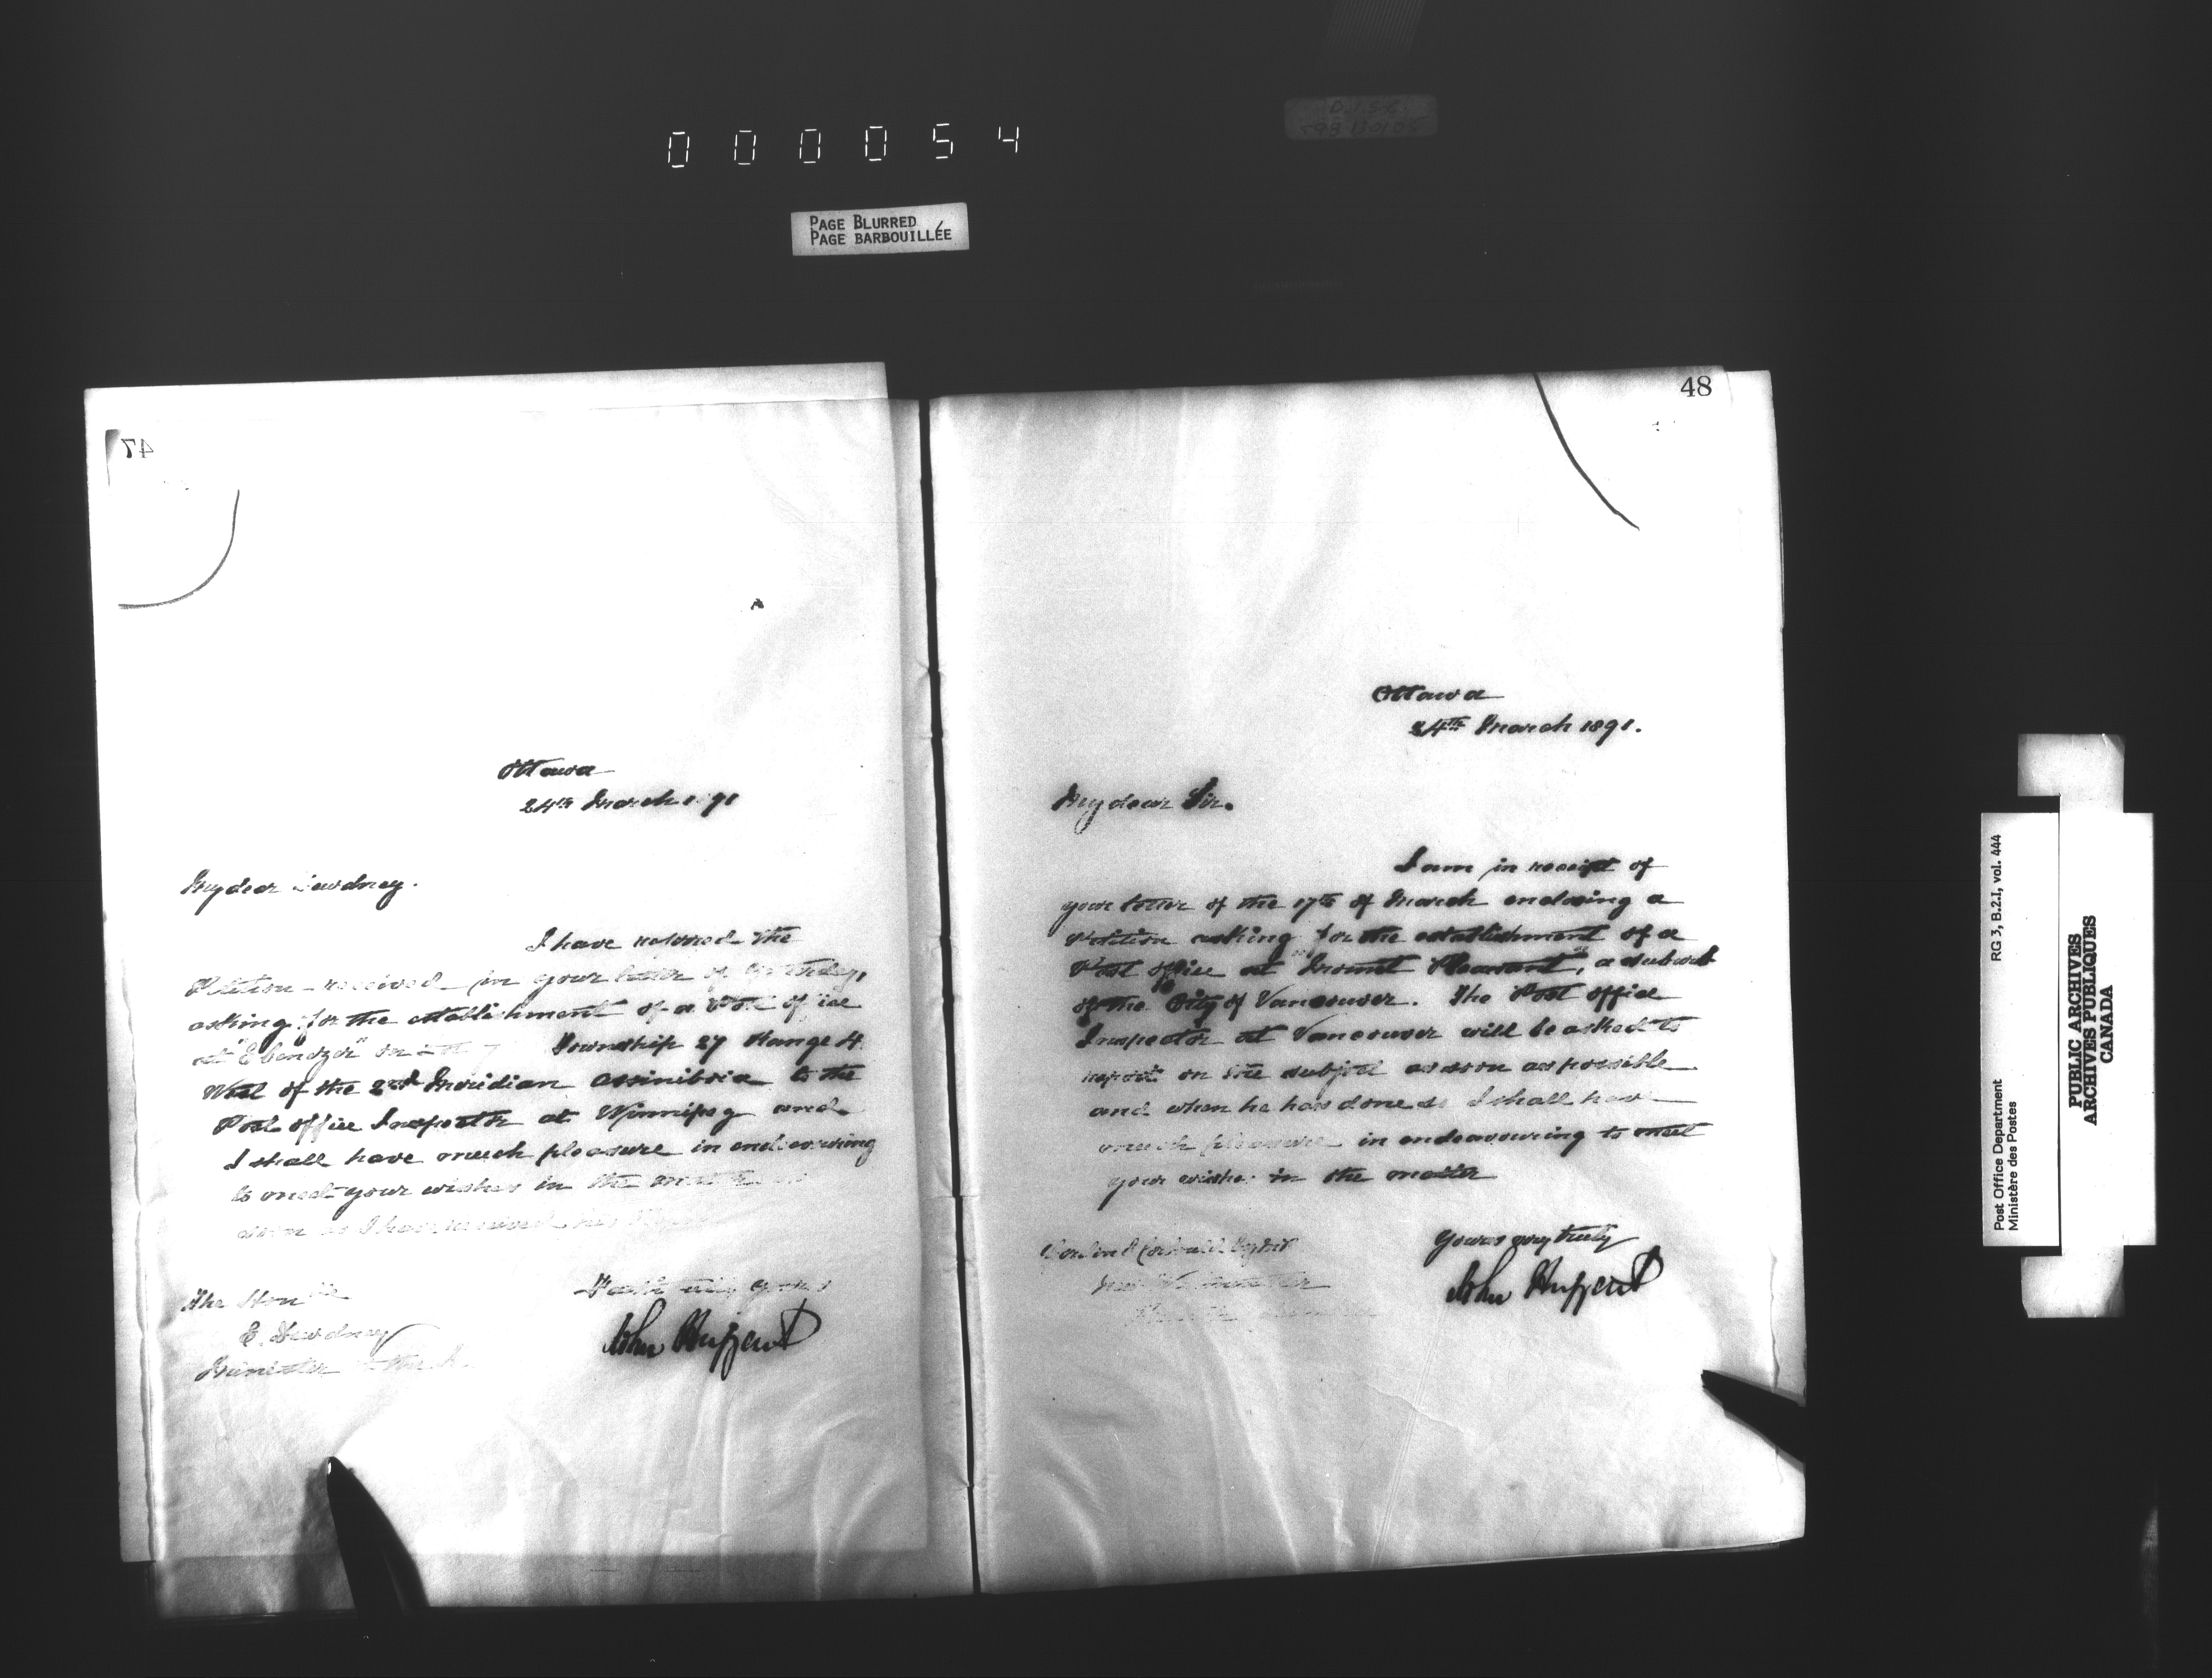 000054
PAGE BLURRED
PAGE BARBOUILLÉE
47
Ottawa
24th March 1 91
My dear Dewdney.
I have referred the
Petition received in your letter of yesterday,
asking for the establishment of a Post office
at "Ebenezer" on
Township 27 Range 4
West of the 2nd Meridian Assiniboia to the
Post office Inspector at Winnipeg and
I shall have much pleasure in endeavouring
to meet your wishes in the matter as
soon as I have received his
Faithfully yours
John Haggart
The Honble
E. Dewdney
Minister
48
Ottawa
24th March 1891.
My dear Sir.
I am in receipt of
your letter of the 17th of March enclosing a
Petition asking for the establishment of a
Post office at "Mount Pleasant", a suburb
of the City of Vancouver. The Post office
Inspector at Vancouver will be asked to
report on the subject as soon as possible
and when he has done so I shall have
much pleasure in endeavouring to meet
your wishes in the matter
Yours very truly
John Haggart
New Westminster
Post Office Department
Ministère des Postes
RG 3, B.2.I, vol. 444
PUBLIC ARCHIVES
ARCHIVES PUBLIQUES
CANADA